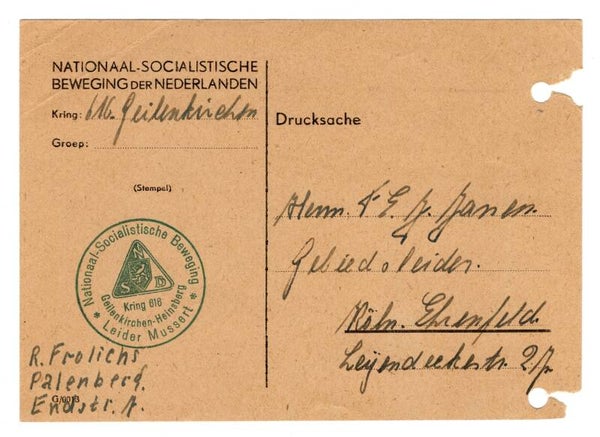 NATIONAAL-SOCIALISTISCHE
BEWEGING DER NEDERLANDEN
Kring: 616. Geilenkirchen
Groep:
(Stempel)
Nationaal-Socialistische Beweging
N
S B
Kring 616
Geilenkirchen-Heinsberg
* Leider Mussert *
R. Frolichs
Palenberg.
Endstr. 1.
G/0013
Drucksache
Herrn. F E J. Jansen
Gebiedsleider.
Köln. Ehrenfeld
Leyendeckerstr. 27.